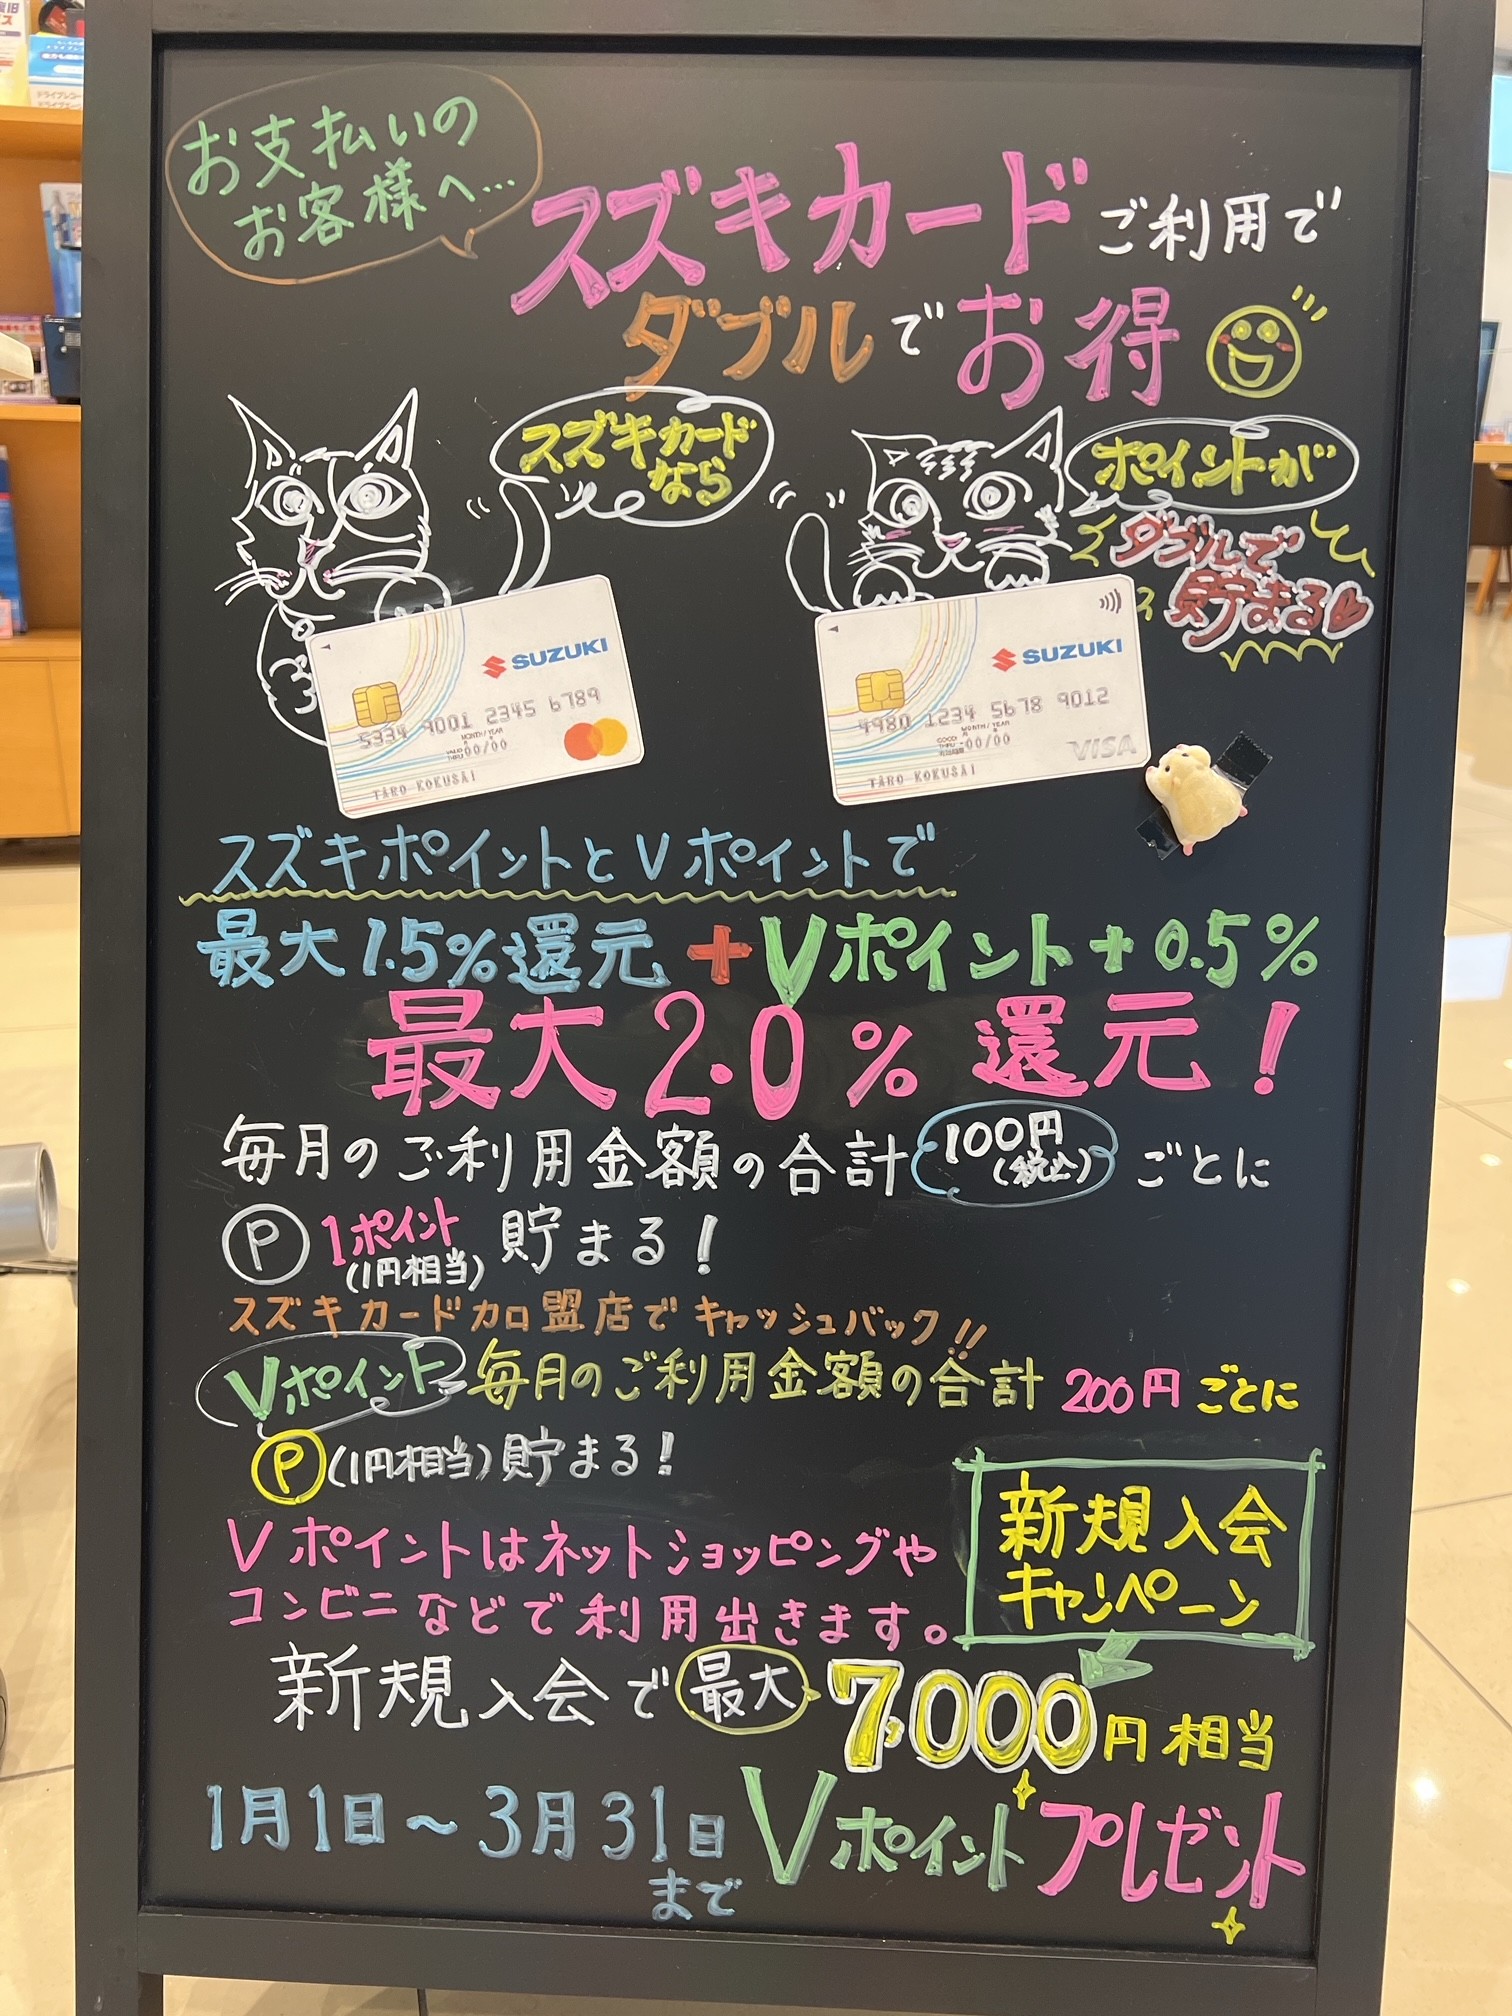 お支払いの
お客様へ…
スズキカードご利用で
ダブルでお得
スズキカード
なら
ポイントが
ダブルで
貯まる
SUZUKI
5334 9001 2345 6789
MONTH/YEAR
00/00
TARO KOKUSAI
SUZUKI
4980 1234 5678 9012
MONTH/YEAR
00/00
VISA
TARO KOKUSAI
スズキポイントとVポイントで
最大1.5%還元+Vポイント+0.5%
最大2.0%還元!
毎月のご利用金額の合計100円(税込)ごとに
P 1ポイント(1円相当)貯まる!
スズキカード加盟店でキャッシュバック!!
Vポイント 毎月のご利用金額の合計200円ごとに
P(1円相当)貯まる!
Vポイントはネットショッピングや
コンビニなどで利用出きます。
新規入会
キャンペーン
新規入会で最大7,000円相当
1月1日〜3月31日まで
Vポイントプレゼント